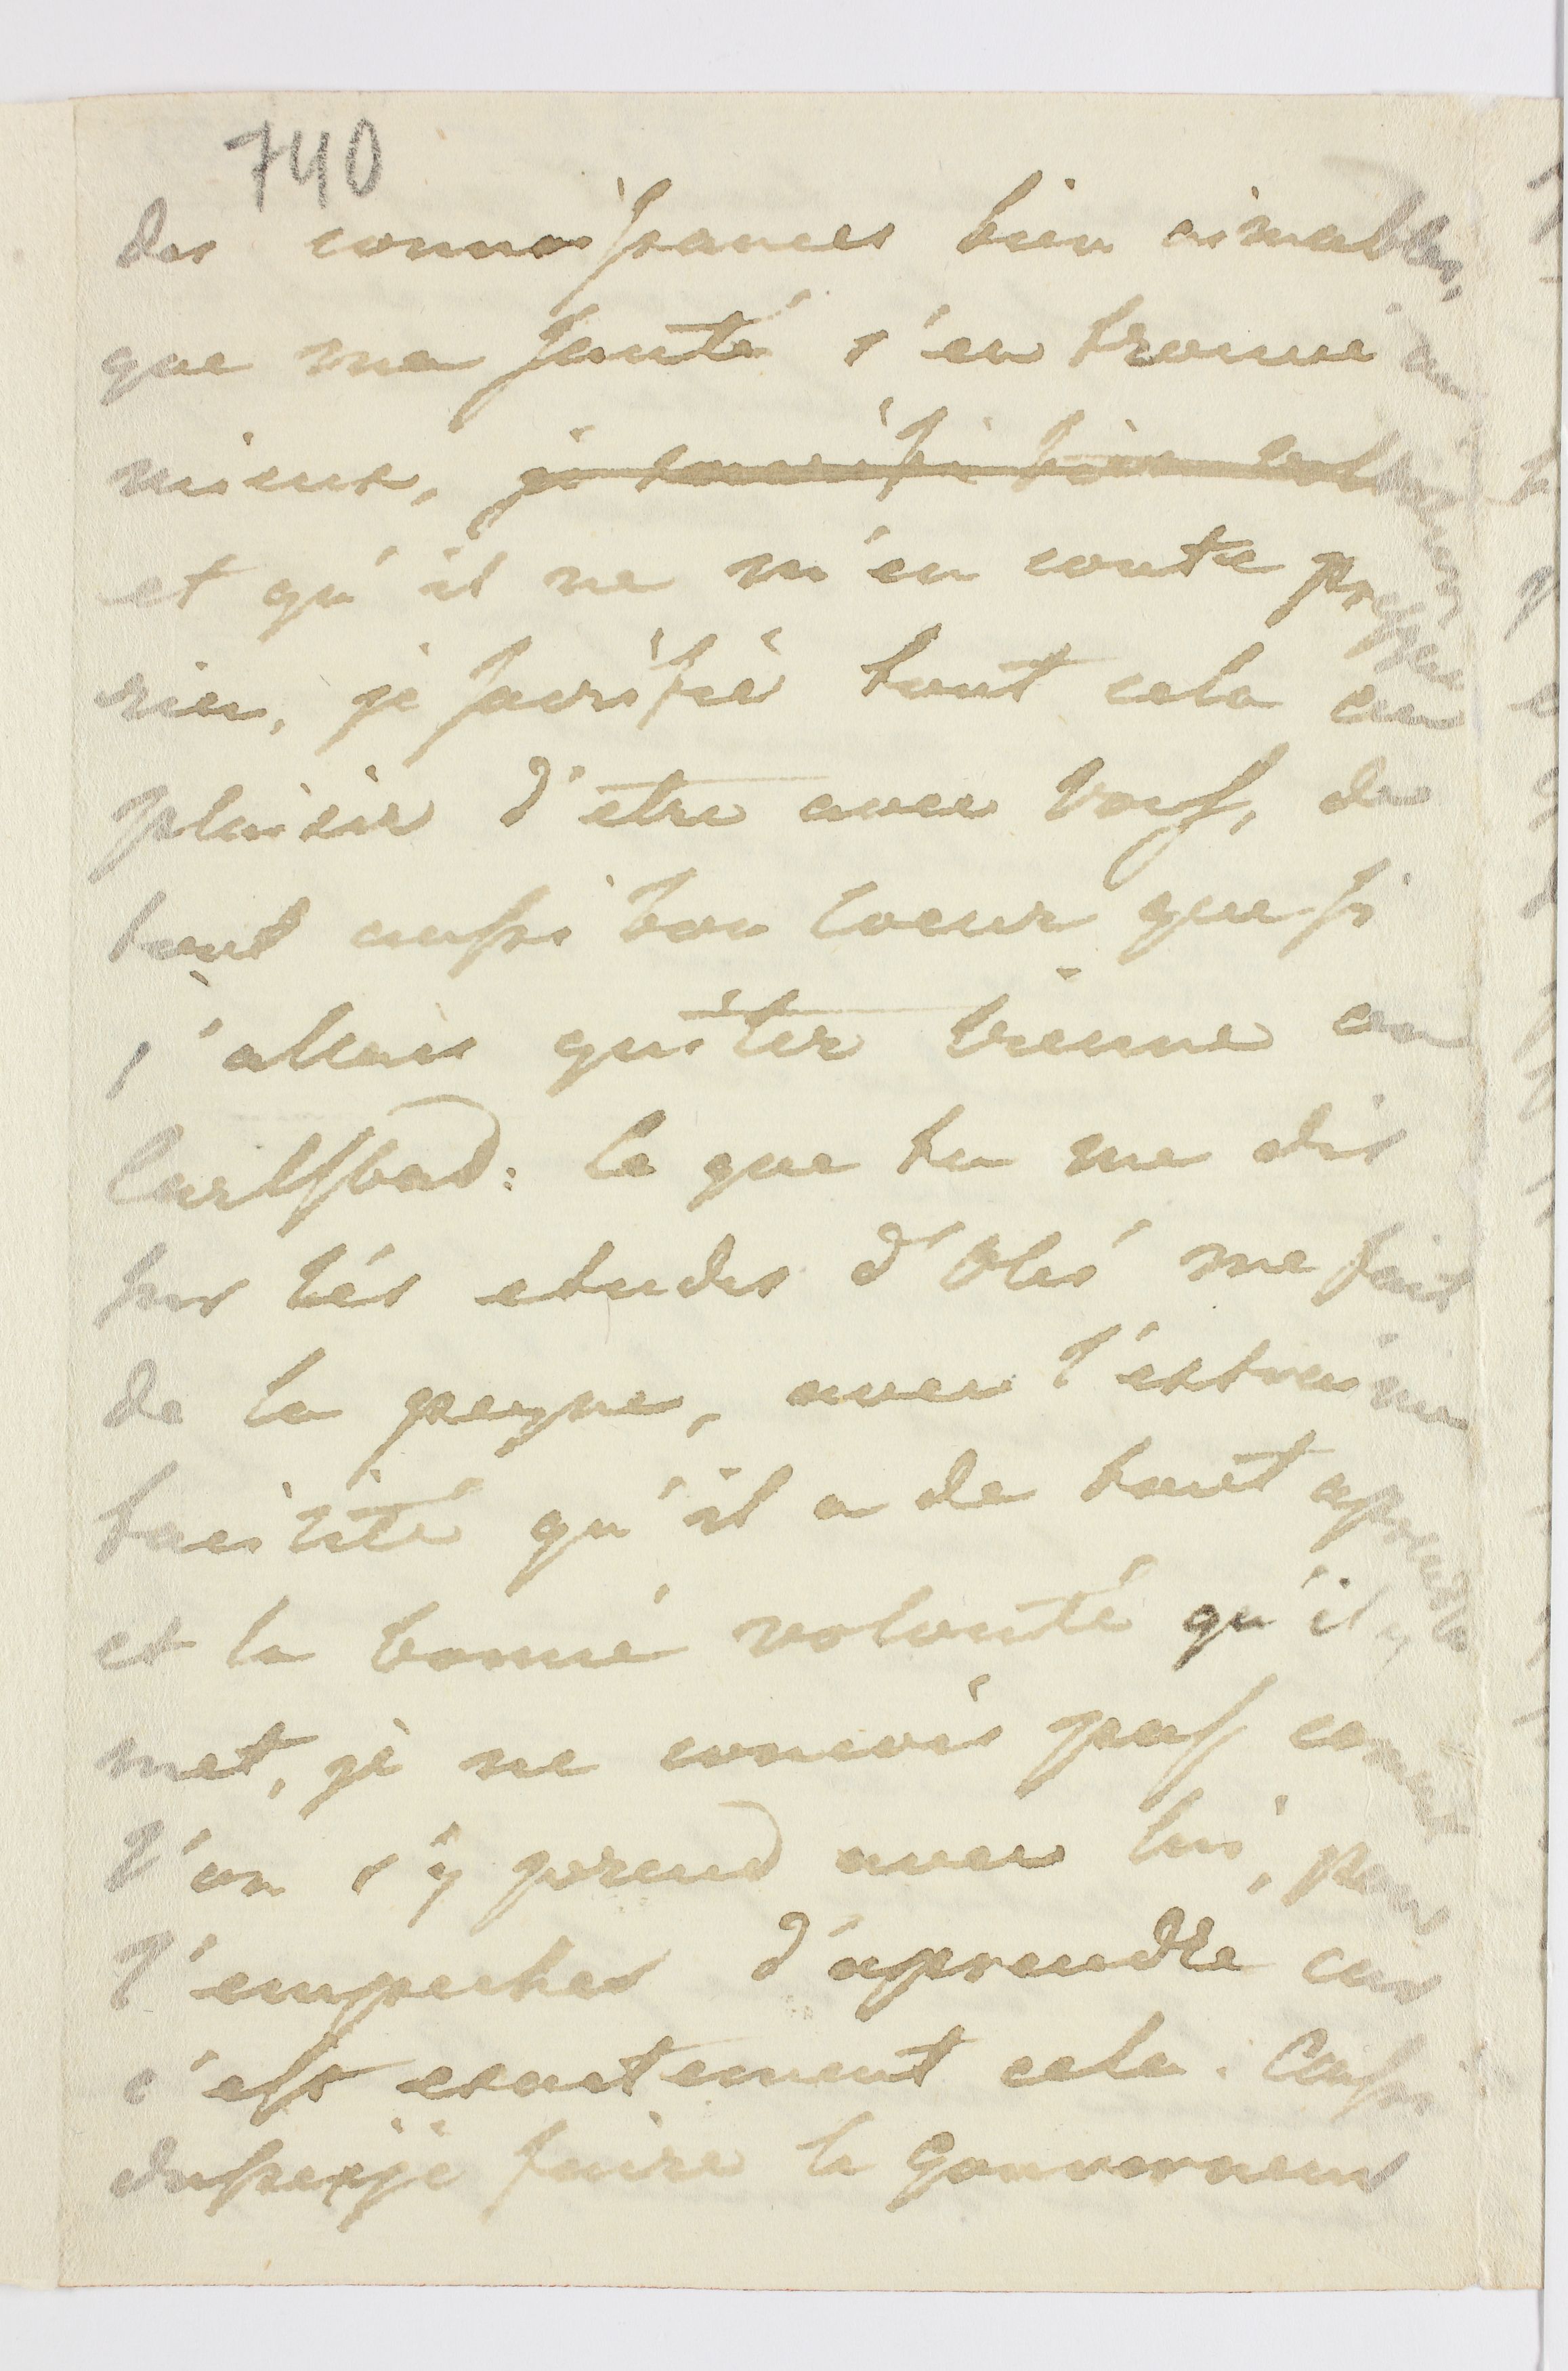 740
des connoissances bien aimables,
que ma santé s'en trouve au
mieux, je sacrifie bien volontiers
et qu'il ne m'en coute presque
rien, je sacrifie tout cela au
plaisir d'etre avec vous, de
tout aussi bon coeur que si
j'allais quiter vienne ou
Carlsbad: Ce que tu me dis
sur lés etudes d' me fait
de la peyne, avec l'extreme
facilité qu'il a de tout aprendre
et la bonne volonté qu'il y
met, je ne concois pas coment
l'on s'y prend avec lui, pour
l'empecher d'aprendre car
c'est exactement cela. Aussi
dusseje faire le Gouverneur